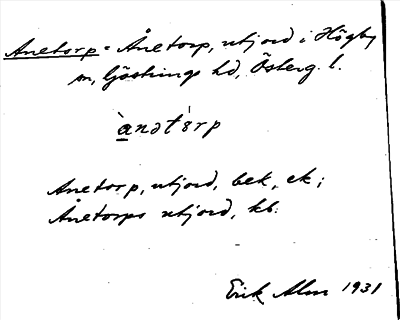 Anetorp = Ånetorp, utjord i Högby
sn, Göstrings hd, Österg. l.
ànətˈɜrp
Anetorp, utjord, bek, ek;
Ånetorps utjord, kb.
Erik Alm 1931